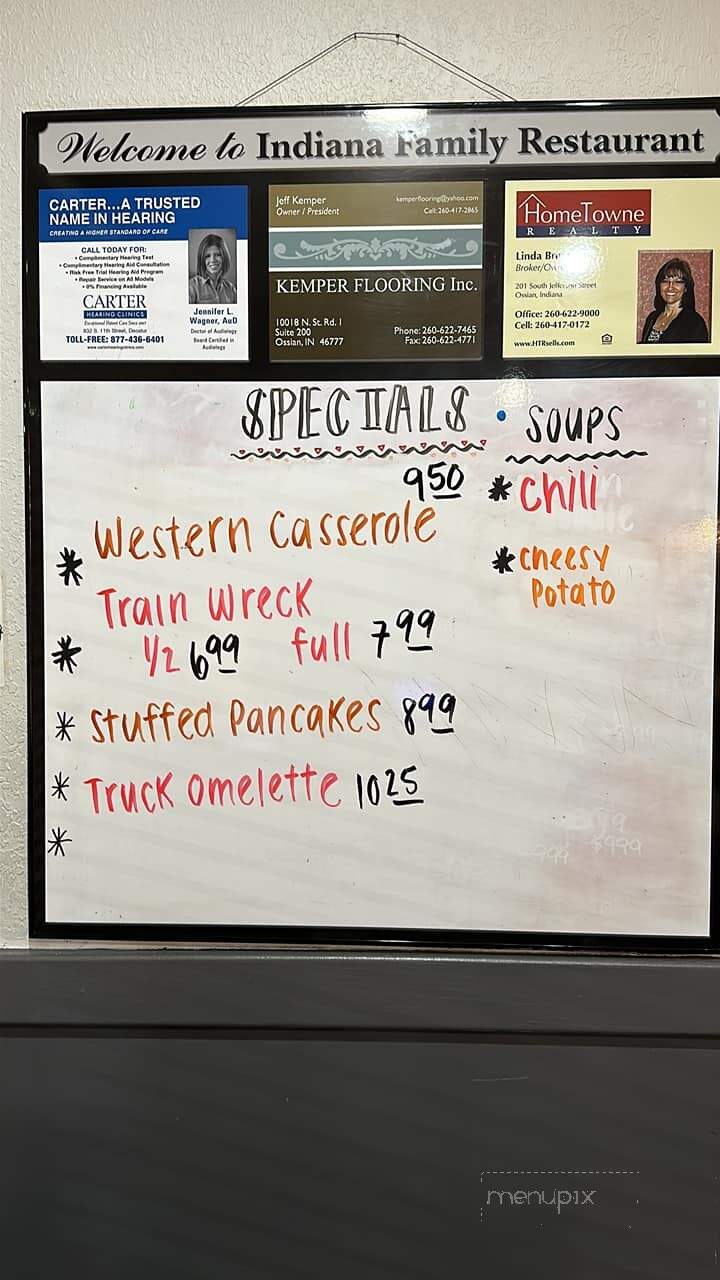 Welcome to Indiana Family Restaurant
CARTER...A TRUSTED
NAME IN HEARING
CREATING A HIGHER STANDARD OF CARE
CALL TODAY FOR:
• Complimentary Hearing Test
• Complimentary Hearing Aid Consultation
• Risk Free Trial Hearing Aid Program
• Repair Service on All Models
• 0% Financing Available
CARTER
HEARING CLINICS
Exceptional Patient Care Since
832 S. 11th Street, Decatur
TOLL-FREE: 877-436-6401
www.carterhearingclinics.com
Jennifer L.
Wagner, AuD
Doctor of Audiology
Board Certified in
Audiology
Jeff Kemper
Owner / President
kemperflooring@yahoo.com
Cell: 260-417-2865
KEMPER FLOORING Inc.
10018 N. St. Rd. 1
Suite 200
Ossian, IN 46777
Phone: 260-622-7465
Fax: 260-622-4771
HomeTowne
REALTY
Linda
Broker/
201 South Street
Ossian, Indiana
Office: 260-622-9000
Cell: 260-417-0172
www.HTRsells.com
SPECIALS
950
* Western Casserole
Train Wreck
* 1/2 699 full 799
* Stuffed Pancakes 899
* Truck Omelette 1025
*
• Soups
* Chili
* Cheesy
Potato
menupix